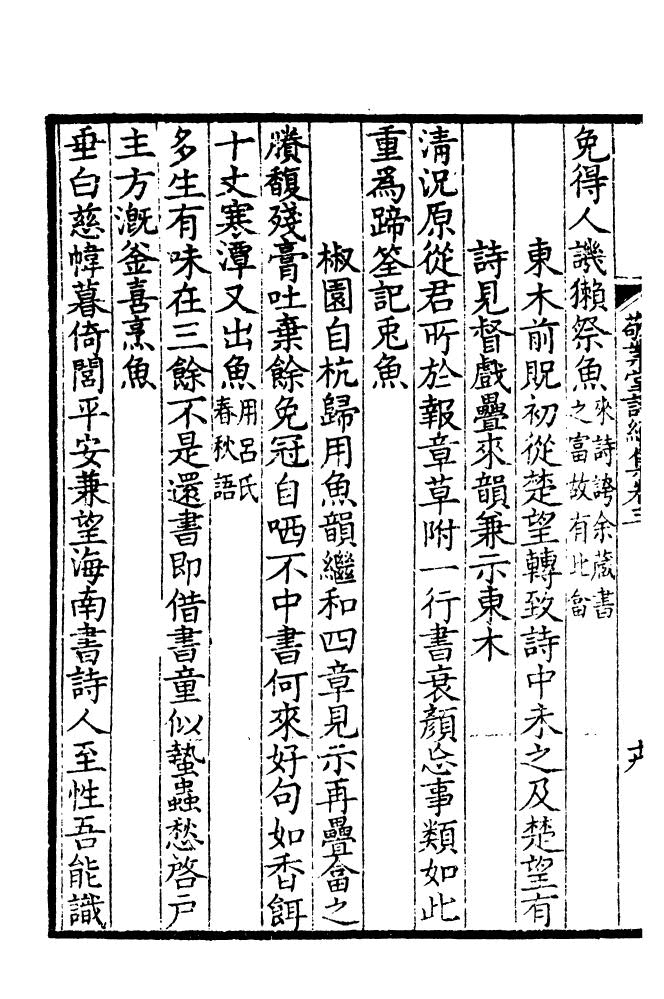 敬業堂詩續集卷三
免得人譏獺祭魚來詩誇余藏書之富故有此畣
東木前貺初從楚望轉致詩中未之及楚望有
詩見督戲疊來韻兼示東木
清況原從君所於報章草附一行書衰顏忘事類如此
重爲蹄筌記兎魚
椒園自杭歸用魚韻繼和四章見示再疊畣之
賸馥殘膏吐棄餘免冠自哂不中書何來好句如香餌
十丈寒潭又出魚用呂氏春秋語
多生有味在三餘不是還書即借書童似蟄蟲愁啓戶
主方漑釜喜烹魚
垂白慈幃暮倚閭平安兼望海南書詩人至性吾能識